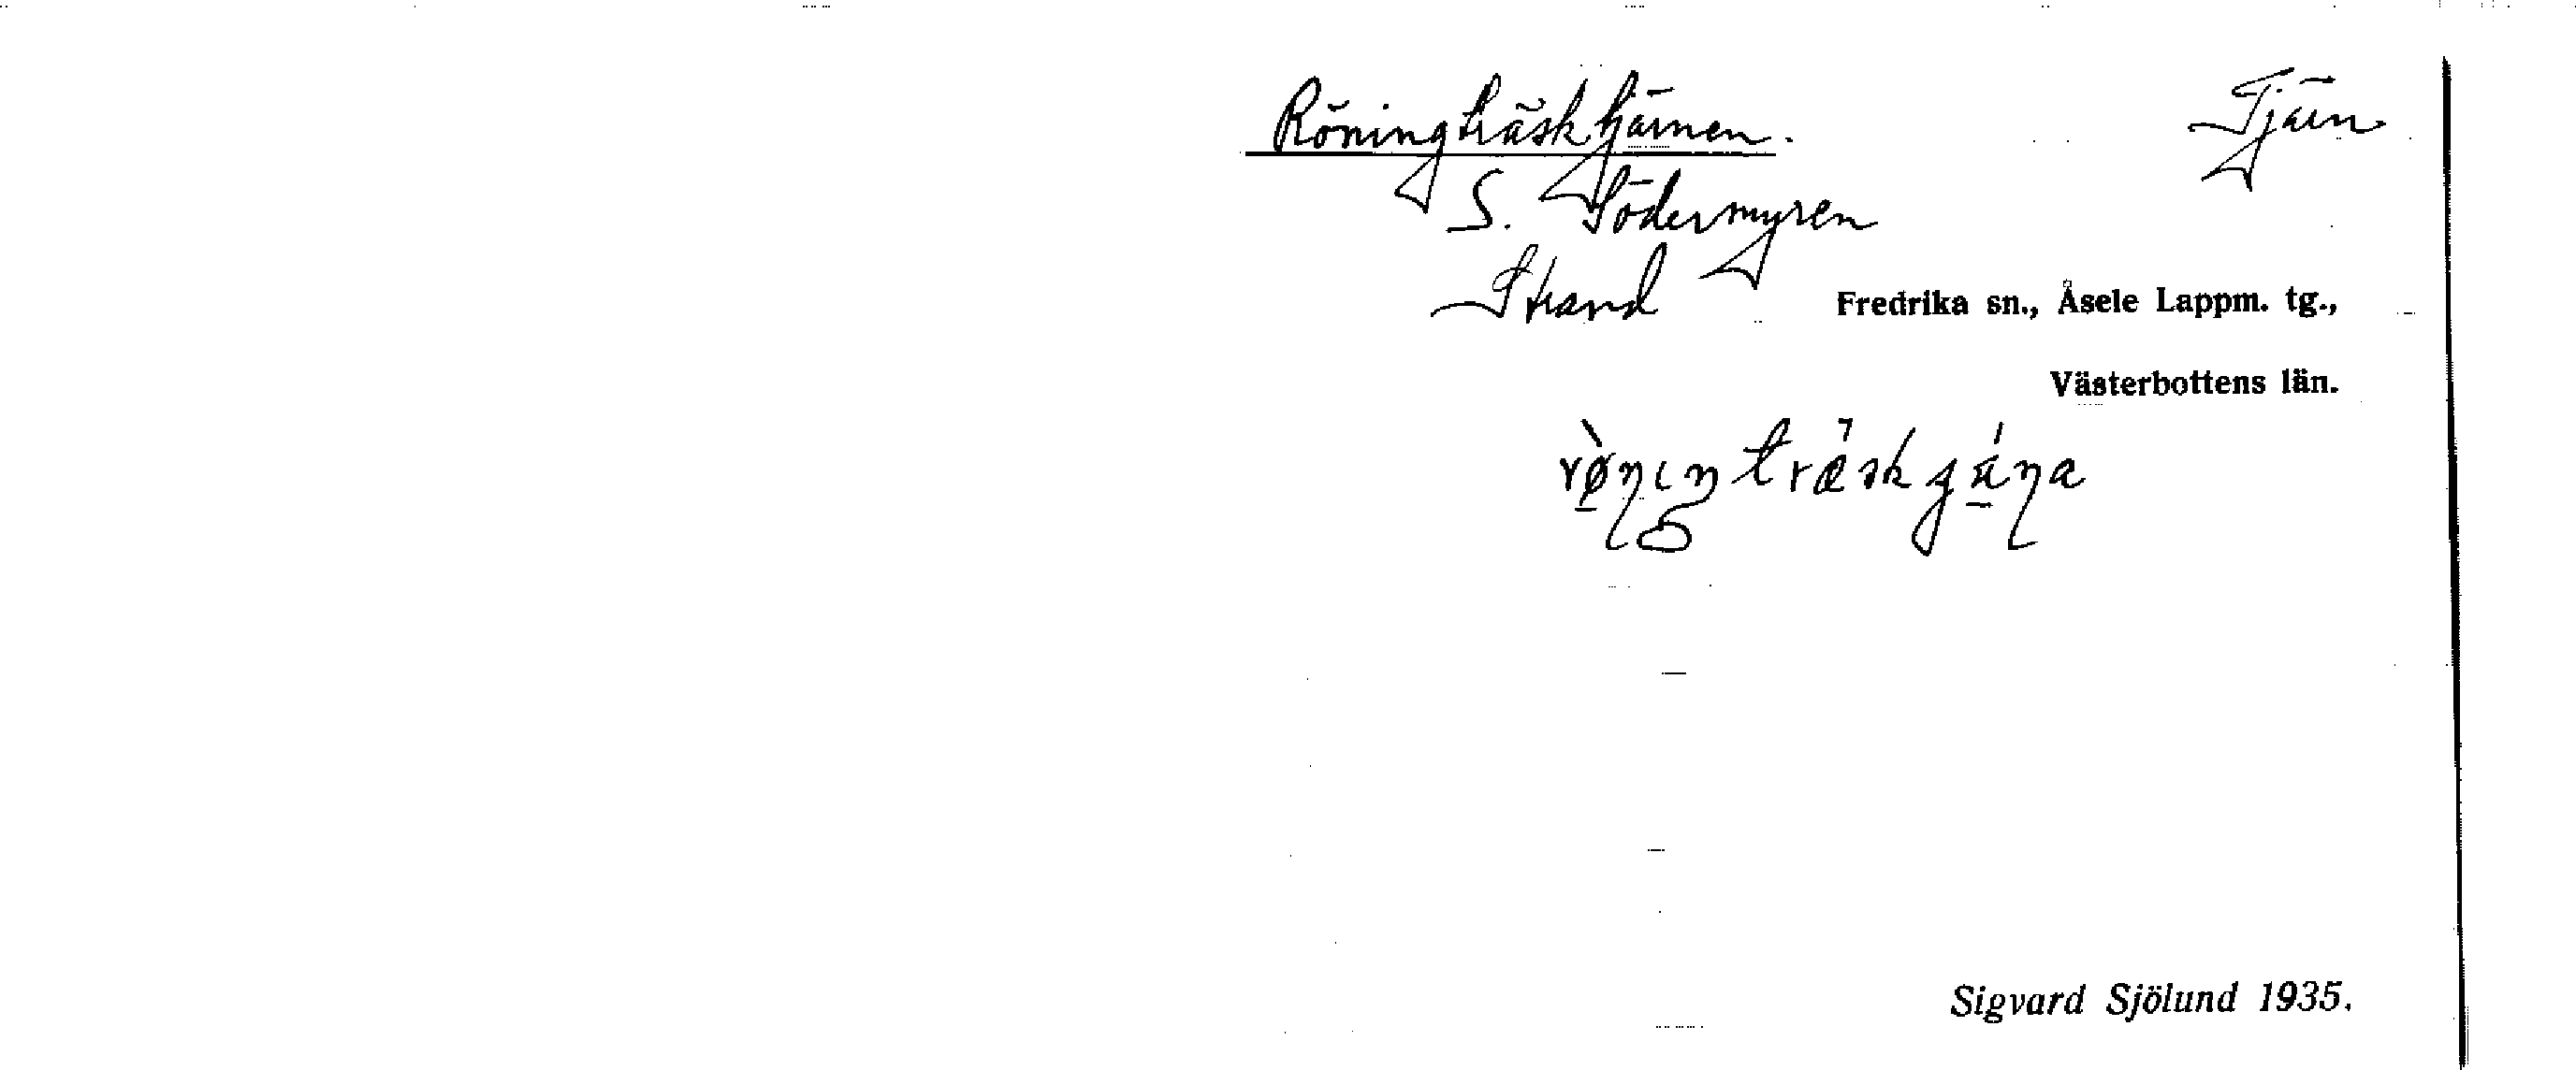 Röningträsktjärnen. Tjärn
S. Södermyren
Strand
Fredrika sn., Åsele Lappm. tg.,
Västerbottens län.
Sigvard Sjölund 1935.